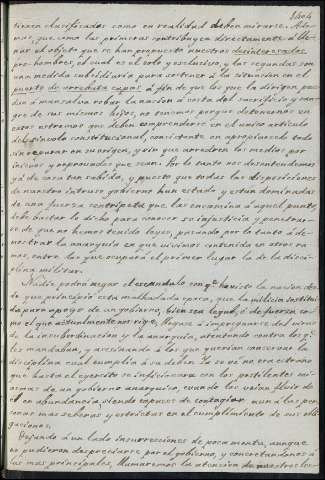 1404
tieren clasificados como en realidad deben mirarse. Ade-
mas, que como las primeras contribuyen directamente á lle-
nar el objeto que se han propuesto nuestros desinteresados
pro-hombres, el cual es el solo y esclusivo, y las segundas son
una medida subsidiaria para sostener á la situacion en el
puerto de arrebata capas á fin de que los que la dirigen pue-
dan á mansalva robar la nacion á costa del sacrificio y san-
gre de sus mismos hijos, no tenemos porque detenernos en
estos estremos que deben comprenderse en el único articulo
del código constitucional, consistente en apropiarselo todo
sin reparar en su origen, y sin que arredren los medios por
inicuos y reprovados que sean. Por lo tanto nos desentendemos
ya de cosa tan sabida, y puesto que todas las disposiciones
de nuestro intruso gobierno han estado y estan dominadas
de una fuerza centripeta que las encamina á aquel punto,
debe bastar lo dicho para conocer su injusticia y penetrar-
se de que no hemos tenido leyes, pasando, por lo tanto á de-
mostrar la anarquia en que vivimos contenida en otros ra-
mos, entre los que ocupará el primer lugar la de la disci-
plina militar.
Nadie podrá negar el escandalo con que ha visto la nacion des-
de que principió esta malhadada epoca, que la milicia institui-
da para apoyo de un gobierno, bien sea legal, ó de fuerza co-
mo el que actualmente nos rige, llegase á impregnarse del virus
de la insubordinacion y la anarquia, atentando contra los que
les mandaban, y asesinando á los que querian conservar la
disciplina cual cumplia á su deber. Ya se vé no era estraño
que hasta el egercito se inficionara con los pestilentes mi-
asmas de un gobierno anarquico, cuando los veian fluir de
él en abundancia, siendo capaces de contagiar aun á las per-
sonas mas severas y estrictas en el cumplimiento de sus obli-
gaciones.
Dejando á un lado insurrecciones de poca monta, aunque
no pudieron despreciarse por el gobierno, y concretandonos á
las mas principales, llamaremos la atencion de nuestros lec-